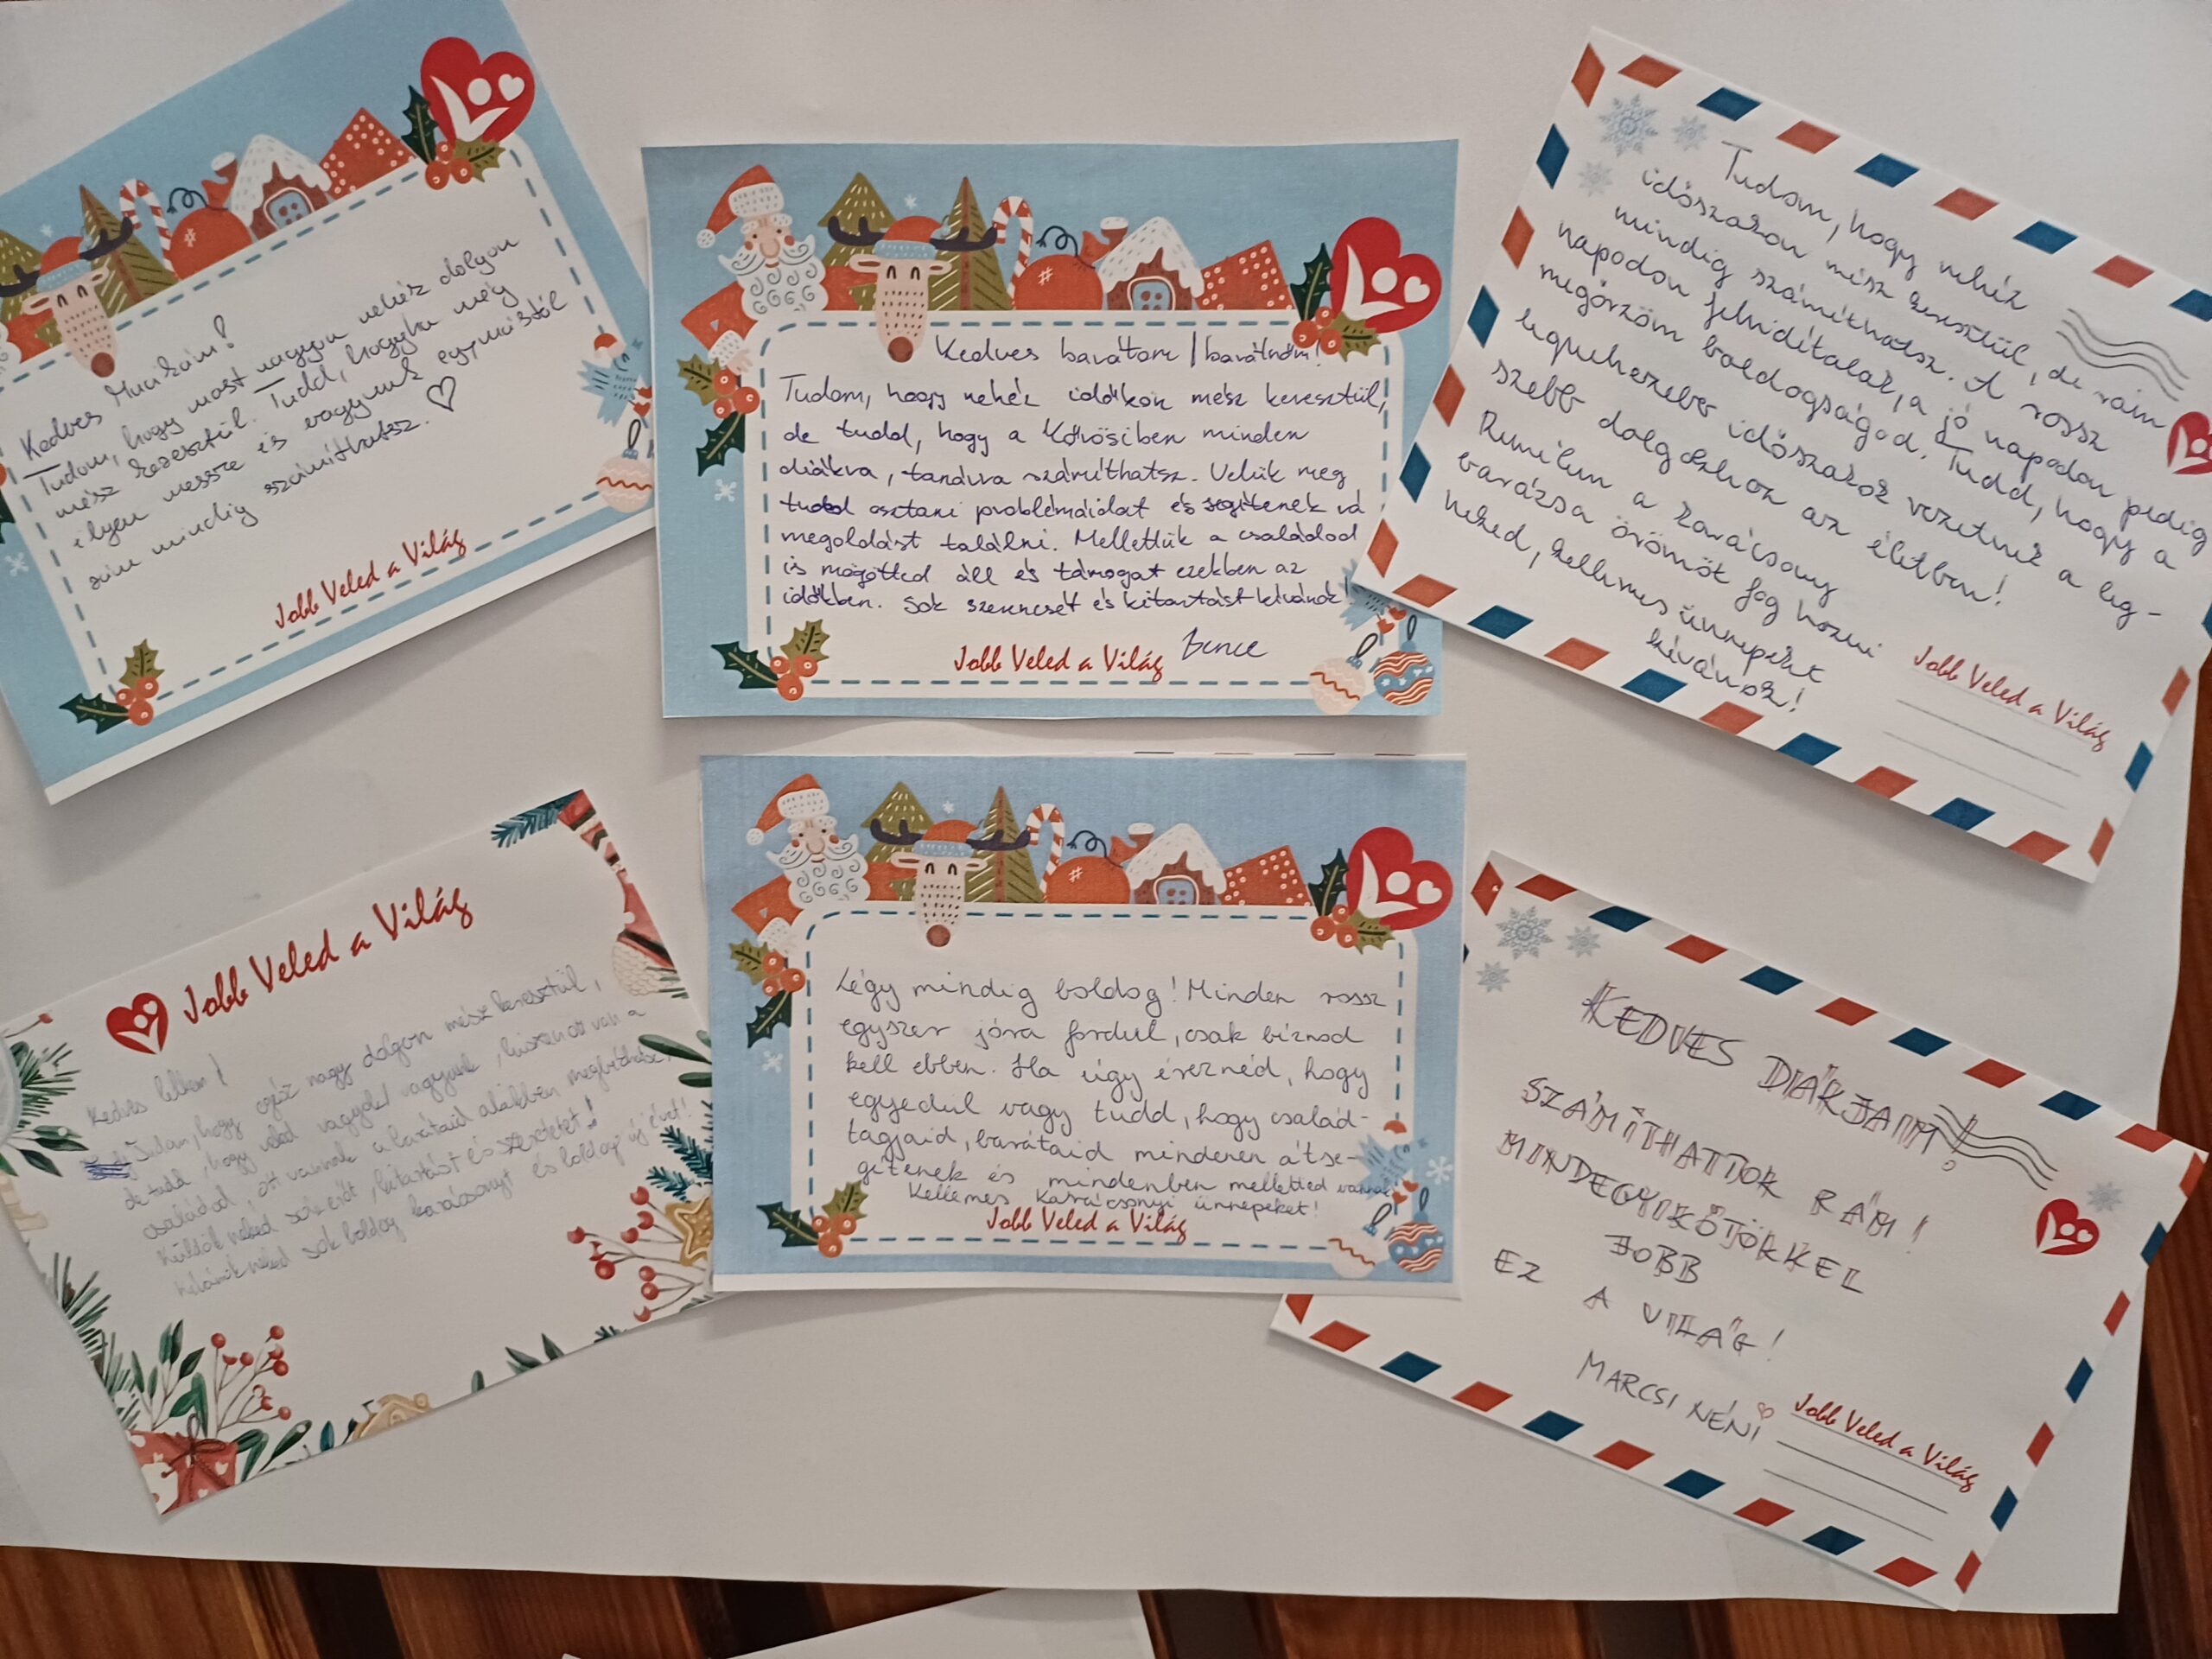 Kedves Mucikám!
Tudom, hogy most nagyon nehéz dolgon
mész keresztül. Tudd, hogyha még
ilyen messze is vagyunk egymástól
rám mindig számíthatsz. ♡
Jobb Veled a Világ
Kedves barátom / barátnőm!
Tudom, hogy nehéz időkön mész keresztül,
de tudd, hogy a Kőrösiben minden
diákra, tanárra számíthatsz. Velük meg
tudod osztani problémáidat és segítenek rá
megoldást találni. Mellettük a családod
is mögötted áll és támogat ezekben az
időkben. Sok szerencsét és kitartást kívánok!
Bence
Jobb Veled a Világ
Tudom, hogy nehéz
időszakon mész keresztül, de rám
mindig számíthatsz. A rossz
napodon felvidítalak, a jó napodon pedig
megőrzöm boldogságod. Tudd, hogy a
legnehezebb időszakok vezetnek a leg-
szebb dolgokhoz az életben!
Remélem a karácsony
varázsa örömöt fog hozni
neked, kellemes ünnepeket
kívánok!
Jobb Veled a Világ
Jobb Veled a Világ
Kedves lelkem!
Tudom, hogy egész nagy dolgon mész keresztül,
de tudd, hogy veled vagyok/vagyunk, hiszen ott van a
családod, ott vannak a barátaid akikben megbízhatsz.
Küldök neked sok erőt, kitartást és szeretetet!
Kívánok neked sok boldog karácsonyt és boldog új évet!
Légy mindig boldog! Minden rossz
egyszer jóra fordul, csak bíznod
kell ebben. Ha úgy éreznéd, hogy
egyedül vagy tudd, hogy család-
tagjaid, barátaid mindenen átse-
gítenek és mindenben melletted vannak.
Kellemes Karácsonyi ünnepeket!
Jobb Veled a Világ
KEDVES DIÁKJAIM!
SZÁMÍTHATTOK RÁM!
MINDEGYIKŐTÖKKEL
JOBB
EZ A VILÁG!
MARCSI NÉNI ♡
Jobb Veled a Világ